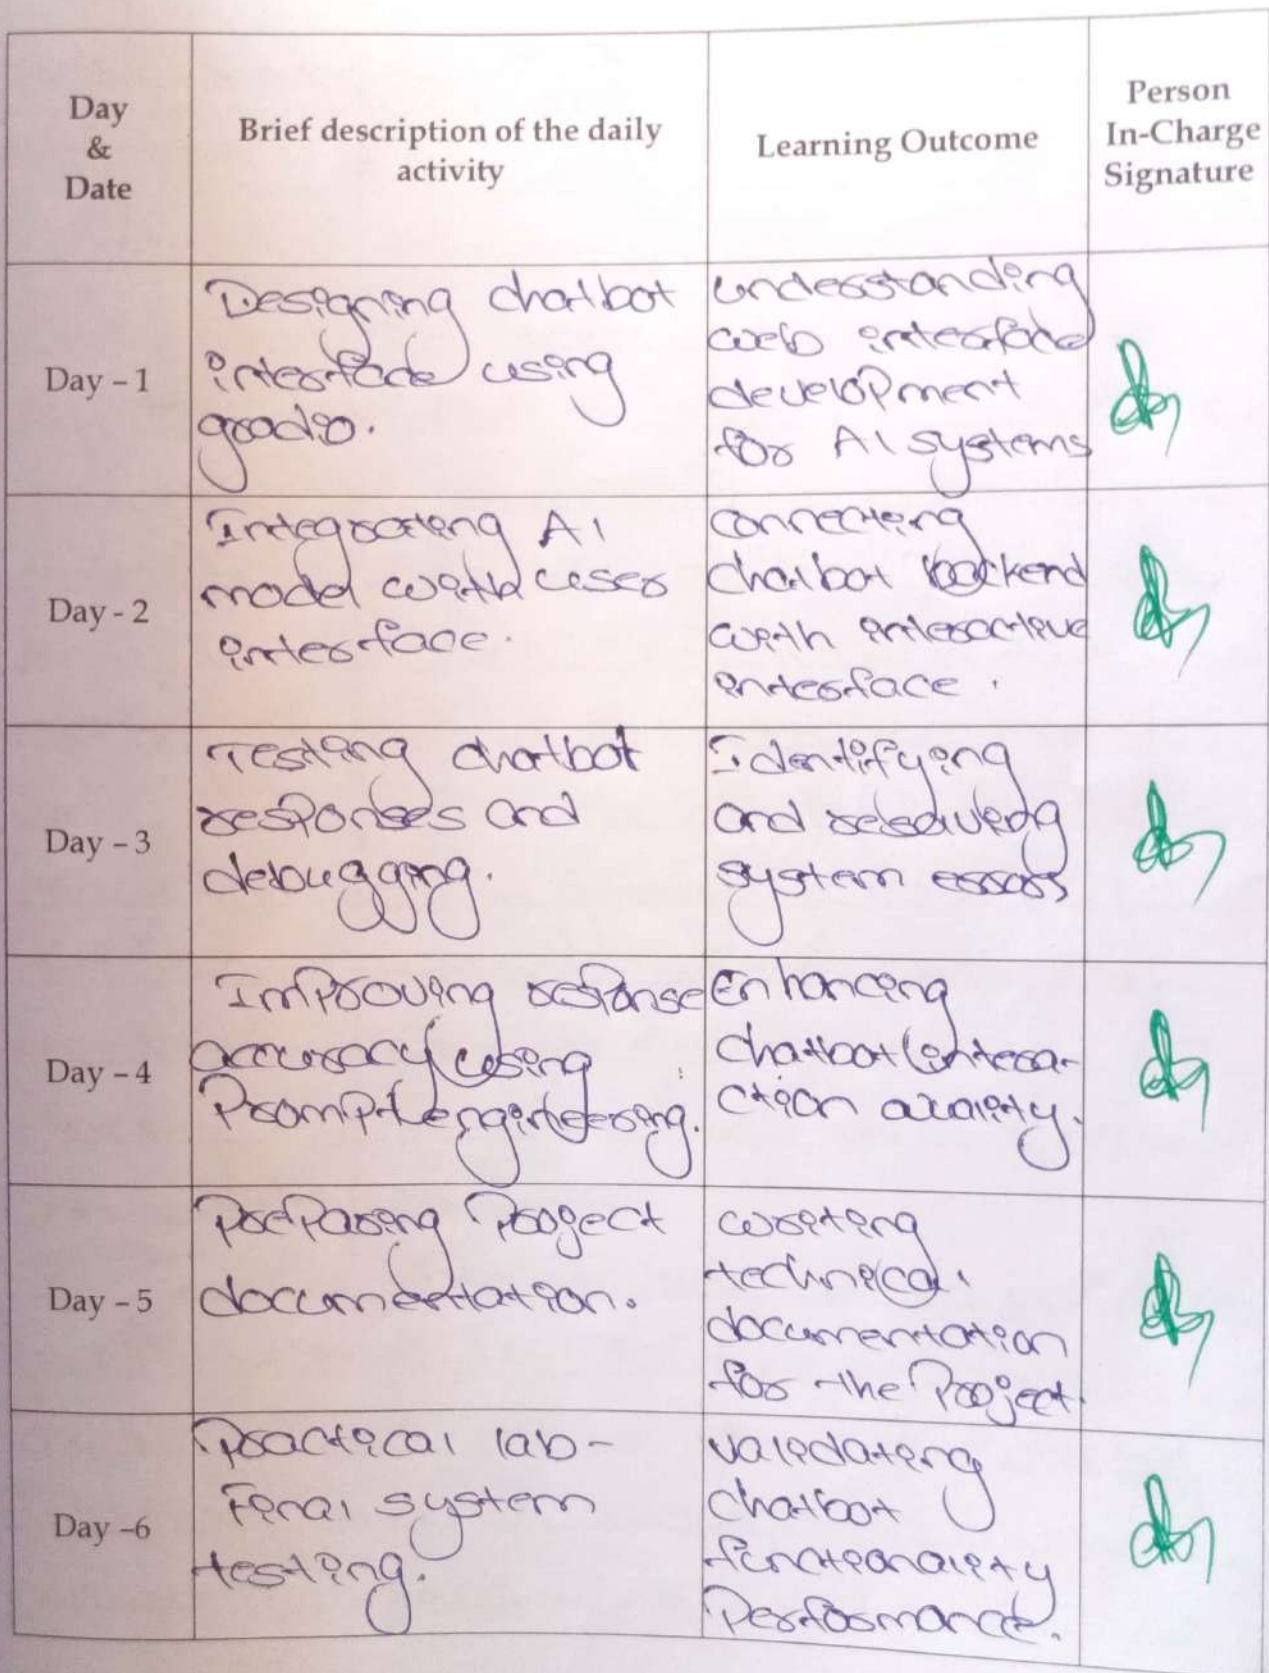 Day
&
Date
Brief description of the daily
activity
Learning Outcome
Person
In-Charge
Signature
Day – 1
Designing chatbot
interface using
gradio.
understanding
web interface
development
for AI systems
Day - 2
Integrating AI
model with user
interface.
connecting
chatbot backend
with interactive
interface.
Day – 3
Testing chatbot
responses and
debugging.
Identifying
and resolving
system errors
Day – 4
Improving response
accuracy using
Prompt engineering.
Enhancing
chatbot intera-
ction quality.
Day – 5
Preparing Project
documentation.
writing
technical
documentation
for the Project.
Day –6
Practical lab-
Final system
testing.
validating
chatbot
functionality
Performance.